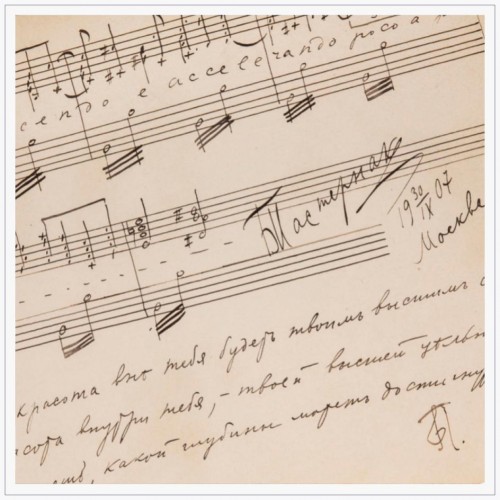 cendo e accelerando poco a
БПастернак
19 30/IX 07
Москва
красота вне тебя будетъ твоимъ высшимъ
сота внутри тебя, – твоей высшей
какой глубины можетъ
БП.